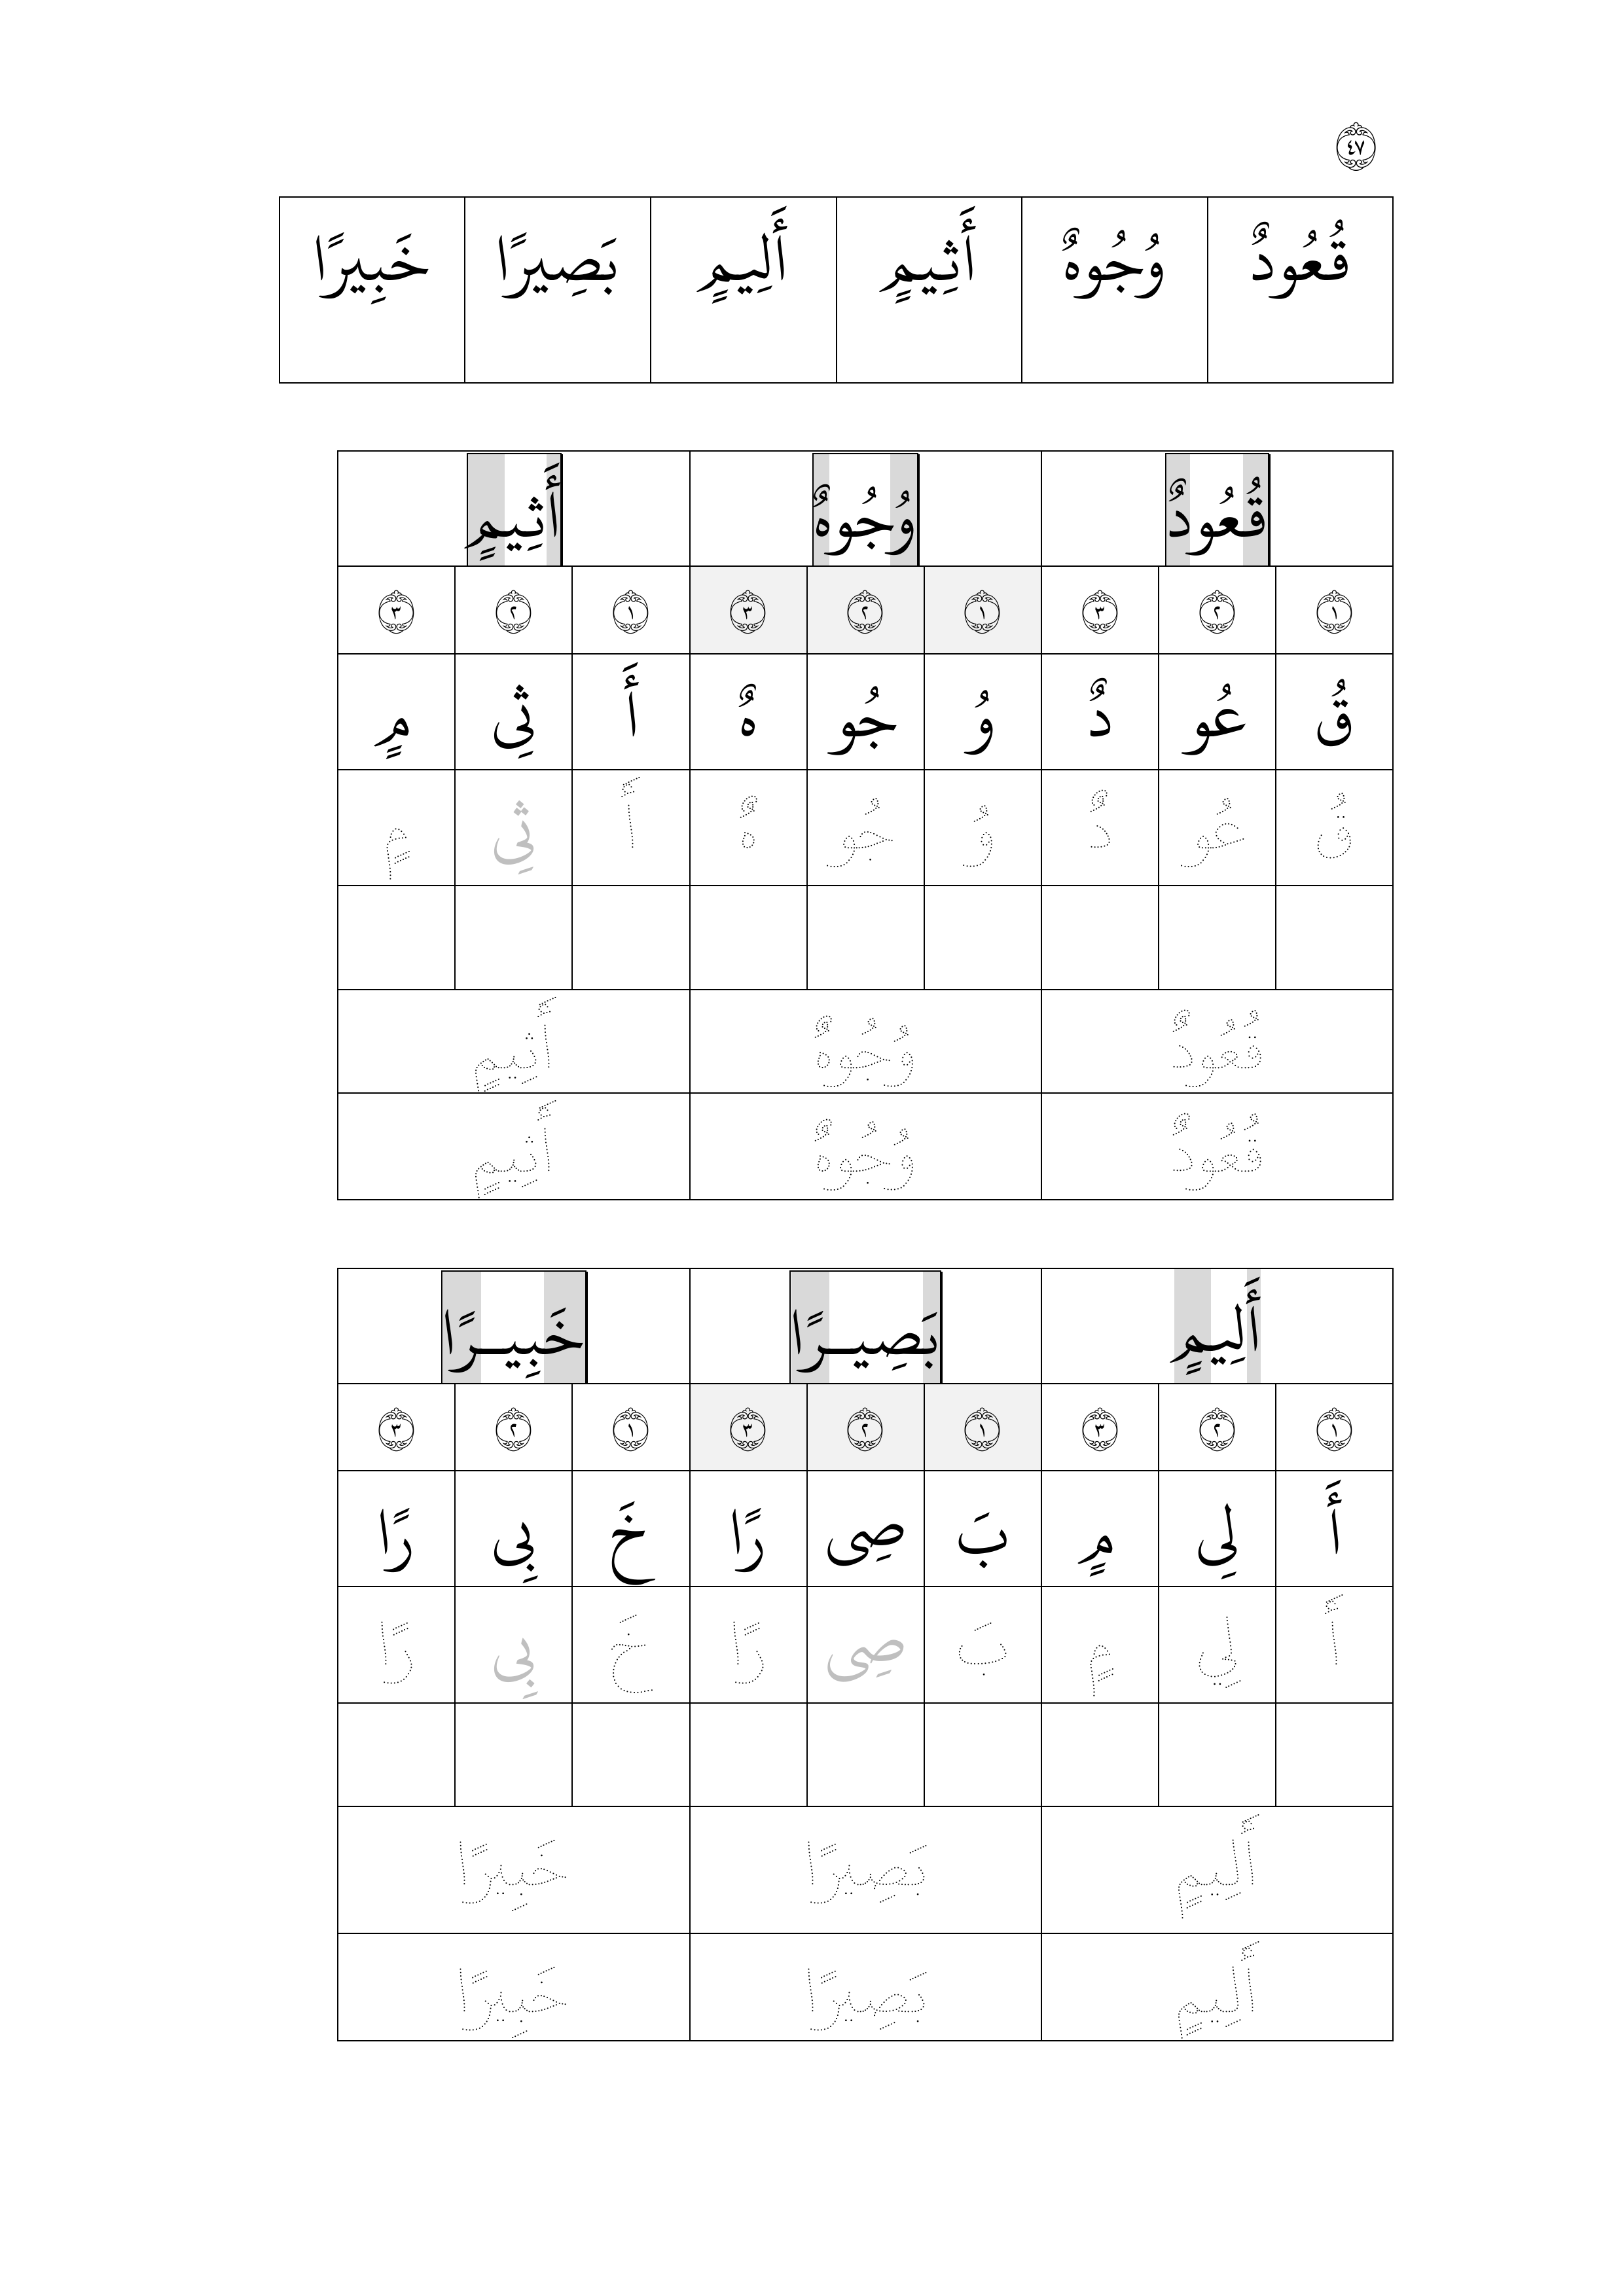 ٤٧
قُعُودٌ وُجُوهٌ أَثِيمٍ أَلِيمٍ بَصِيرًا خَبِيرًا
قُعُودٌ وُجُوهٌ أَثِيمٍ
١ ٢ ٣ ١ ٢ ٣ ١ ٢ ٣
قُ عُو دٌ وُ جُو هٌ أَ ثِى مٍ
قُ عُو دٌ وُ جُو هٌ أَ ثِى مٍ
قُعُودٌ وُجُوهٌ أَثِيمٍ
قُعُودٌ وُجُوهٌ أَثِيمٍ
أَلِيمٍ بَصِيــرًا خَبِيــرًا
١ ٢ ٣ ١ ٢ ٣ ١ ٢ ٣
أَ لِى مٍ بَ صِى رًا خَ بِى رًا
أَ لِي مٍ بَ صِى رًا خَ بِى رًا
أَلِيمٍ بَصِيرًا خَبِيرًا
أَلِيمٍ بَصِيرًا خَبِيرًا